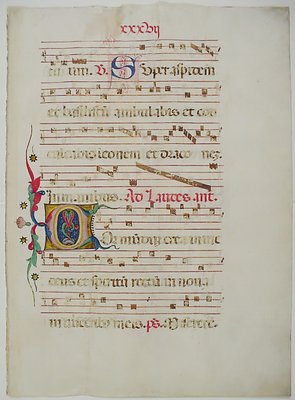 xxxvij
tuum. V. Super aspidem
et basiliscū ambulabis et con
culcabis leonem et draconem.
Ad Laudes. ant.
Cor mūdū crea in me
deus et spiritū rectū in noua
in visceribus meis. ps. Miserere.